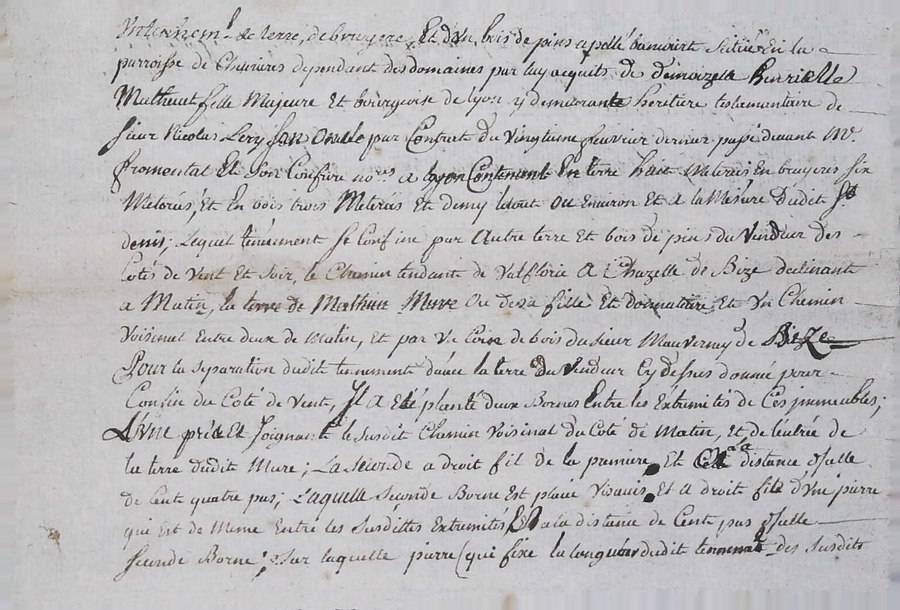 de terre, de bruyere, Et d'un bois de pins apellé situé En la
parroisse de dependant des domaines par luy acquits de demoizelle
Matheuet fille Majeure Et bourgeoise de lyon y demeurante heritiere testamentaire de
sieur Nicolas Lery son Oncle par Contrat du vingtieme feuvrier dernier passé devant Me
fromental Et son Confrere nores a lyon Contenant En terre huit Meterés En bruyeres six
Meterés, Et En bois trois Meterés Et demy letout ou Environ Et a la Mesure dudit St
denis; Lequel tenement se Confine par Autre terre Et bois de pins du Vendeur des
Cotés de Vent Et soir, le Chemin tendant de Valflorie A Chazelle de Bize declinant
a Matin, la terre de Mathieu Mure Ou de sa fille Et donnataire, Et Un Chemin
Voisinal Entre deux de Matin, Et par Un de bois du sieur Mauvernay de Bize
Pour la separation dudit tennement d'avec la terre du Vendeur Cy dessus donnée pour
Confin du Coté de Vent, Il a Eté planté deux Bornes Entre les Extremités de Ces immeubles;
L'Une près Et joignant le susdit Chemin Voisinal du Coté de Matin, Et de l'entrée de
la terre dudit Mure; La seconde a droit fil de la premiere Et a la distance d'Icelle
de Cent quatre pas; Laquelle seconde Borne Est placée Visavis Et A droit fil d'Une pierre
qui Est de Meme Entre les susdittes Extremités, Et a la distance de Cent pas d'Icelle
seconde Borne; sur laquelle pierre (qui fixe la longueur dudit tennement des susdits